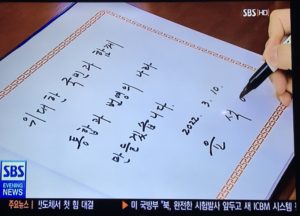 SBS HD
위대한 국민과 함께
통합과 번영의 나라
만들겠습니다.
2022. 3. 10.
윤 석
SBS
EVENING
NEWS
주요뉴스 첫 힘 대결 ▶ 미 국방부 "북, 완전한 시험발사 앞두고 새 ICBM 시스템